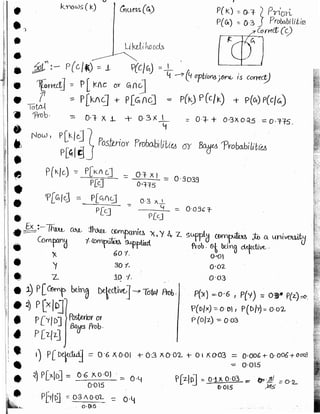 knows (k) Guess (G)
P(K) = 0.7
P(G) = 0.3
} Priori Probabilities
Correct (C)
K G
Likelihoods
Solⁿ :- P(C/K) = 1 P(C/G) = 1/4 → (4 options, one is correct)
P[Correct] = P[KnC or GnC]
= P[KnC] + P[GnC] = P(K) P(C/K) + P(G) P(C/G)
Total Prob.
= 0.7 x 1 + 0.3 x 1/4 = 0.7 + 0.3 x 0.25 = 0.775.
Now, P[K/C]
P[G/C]
} Posterior Probabilities or Bayes Probabilities
P(K/C) = P[KnC] / P[C] = 0.7 x 1 / 0.775 = 0.9033
P[G/C] = P[GnC] / P[C] = 0.3 x 1/4 / P[C] = 0.0967
Ex :- There are three companies X, Y & Z supply computers to a university
Company % computers supplied Prob. of being defective.
X 60 %. 0.01
Y 30 %. 0.02
Z 10 %. 0.03
1) P[Comp being Defective] → Total Prob.
2) P[X/D]
P[Y/D]
P[Z/D]
} Posterior or Bayes Prob.
P(X) = 0.6, P(Y) = 0.3 P(Z) =
P(D/X) = 0.01, P(D/Y) = 0.02
P(D/Z) = 0.03
1) P[Defected] = 0.6 x 0.01 + 0.3 x 0.02 + 0.1 x 0.03 = 0.006 + 0.006 + 0.003
= 0.015
2) P[X/D] = 0.6 x 0.01 / 0.015 = 0.4 P[Z/D] = 0.1 x 0.03 / 0.015 = 0.2
P[Y/D] = 0.3 x 0.02 / 0.015 = 0.4